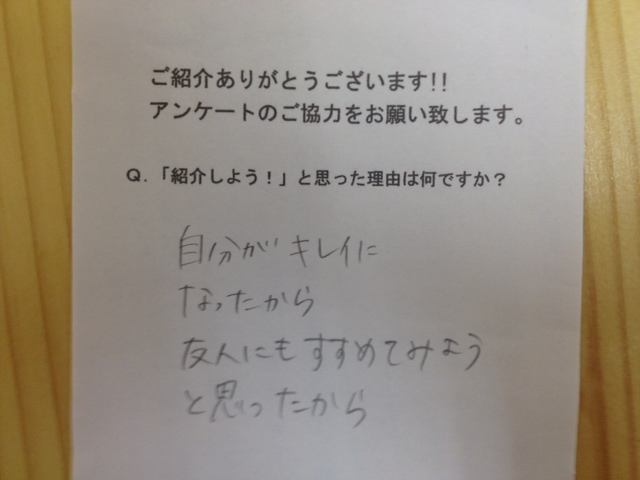 ご紹介ありがとうございます!!
アンケートのご協力をお願い致します。
Q.「紹介しよう！」と思った理由は何ですか？
自分がキレイに
なったから
友人にもすすめてみよう
と思ったから